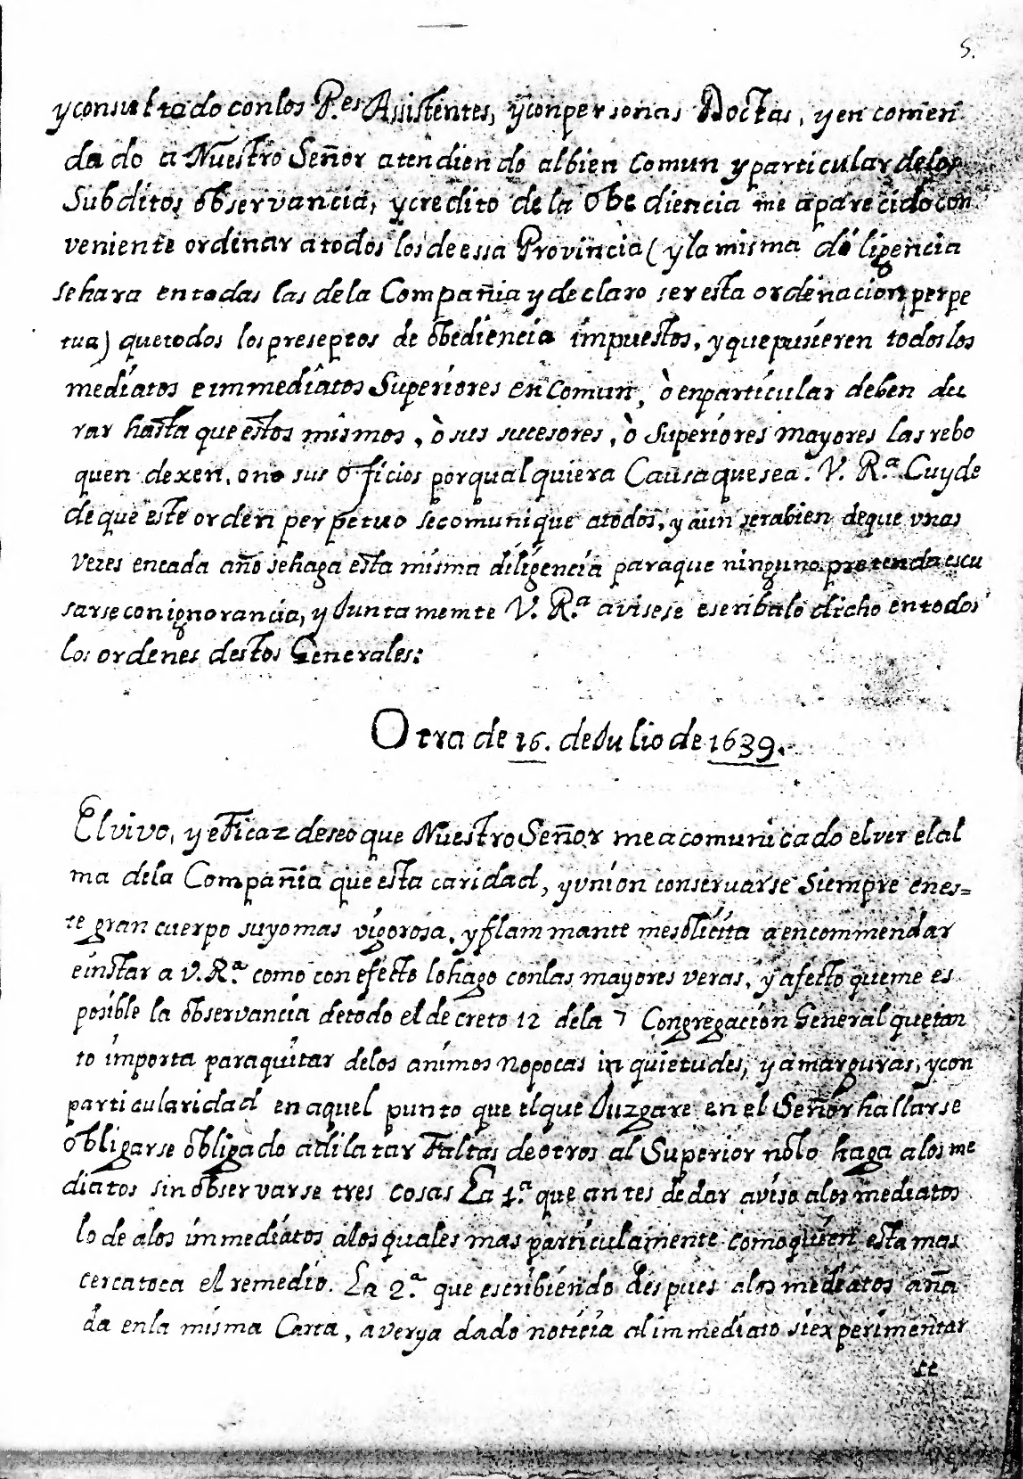 5.
y consultado con los P.es Assistentes, y con personas Doctas, y en comen
dado a Nuestro Señor atendiendo al bien comun y particular de los
Subditos observancia, y credito de la Obediencia me a parecido con
veniente ordinar a todos los de essa Provincia (y la misma diligencia
se hara en todas las de la Compañia y declaro ser esta ordenacion perpe
tua) que todos los preseptos de obediencia impuestos, y que pusieren todos los
mediatos e immediatos Superiores en Comun, ò en particular deben du
rar hasta que estos mismos, ò sus sucesores, ò Superiores mayores las rebo
quen dexen, o no sus Oficios por qual quiera Causa que sea. V. R.ª Cuyde
de que este orden perpetuo se comunique a todos, y aun sera bien de que unas
vezes en cada año se haga esta misma diligencia para que ninguno pretenda escu
sarse con ignorancia, y Juntamemte V. R.ª avisese escriba lo dicho en todos
los ordenes destos Generales:
Otra de 16. de Julio de 1639.
El vivo, y eficaz deseo que Nuestro Señor me a comunicado el ver el al
ma de la Compañia que esta caridad, y union conservarse Siempre en es=
te gran cuerpo suyo mas vigorosa, y flammante me solicita a encommendar
e instar a V. R.ª como con efecto lo hago con las mayores veras, y afecto que me es
posible la observancia de todo el decreto 12 de la 7 Congregacion General que tan
to importa para quitar de los animos no pocas inquietudes, y amarguras, y con
particularidad en aquel punto que el que Juzgare en el Señor hallarse
obligarse obligado a dilatar Faltas de otros al Superior no lo haga a los me
diatos sin observarse tres cosas La 1.ª que antes de dar aviso a los mediatos
lo de a los immediatos a los quales mas particulamente como quien esta mas
cerca toca el remedio. La 2.ª que escribiendo despues a los mediatos aña
da en la misma Carta, aver ya dado noticia al immediato si experimentar
se